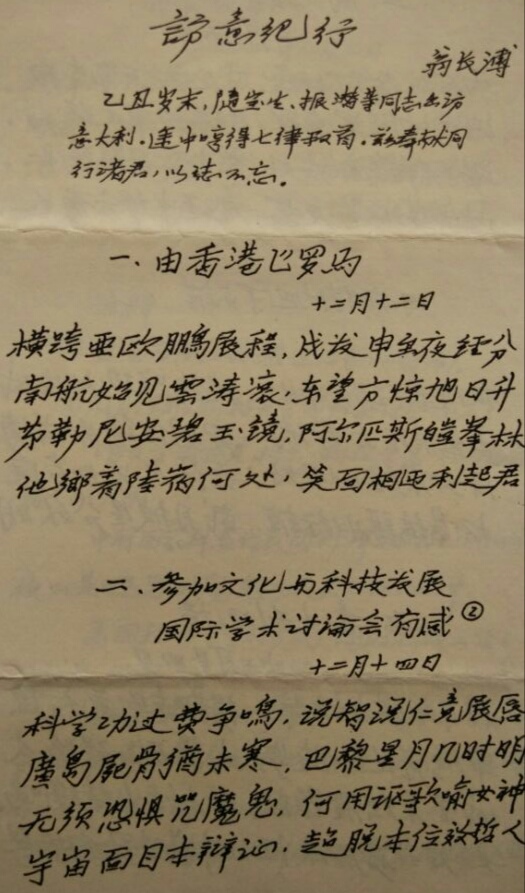 访意纪行
翁长溥
乙丑岁末，随宝生、振潜等同志出访
意大利。途中哼得七律数首。兹奉献同
行诸君，以志不忘。
一、由香港飞罗马
十二月十二日
横跨亚欧鹏展程，戌发申至夜经分
南航始见雲涛滚，东望方惊旭日升
芬勒尼安碧玉镜，阿尔匹斯皚峯林
他鄉着陸病何处，笑向相迎利起君
二、参加文化与科技发展
国际学术讨论会有感②
十二月十四日
科学功过费争鳴，说智说仁竞展唇
廣島屍骨猶未寒，巴黎星月几时明
无须恐惧咒魔鬼，何用讴歌喻女神
宇宙面目本辩证，超脱本位效哲人